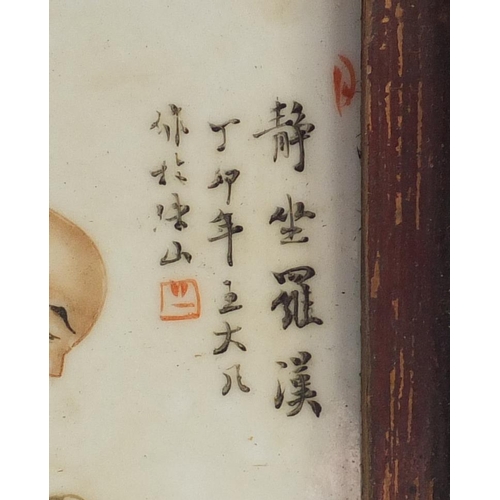 靜坐羅漢
丁卯年王大凡
作於珠山